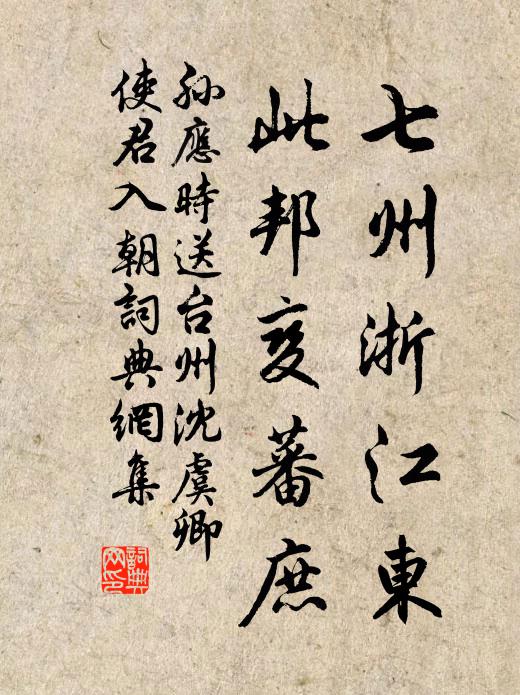 七州浙江東
此邦变蕃庶
孙應時送台州沈虞卿
使君入朝詞典網集
詞典网印